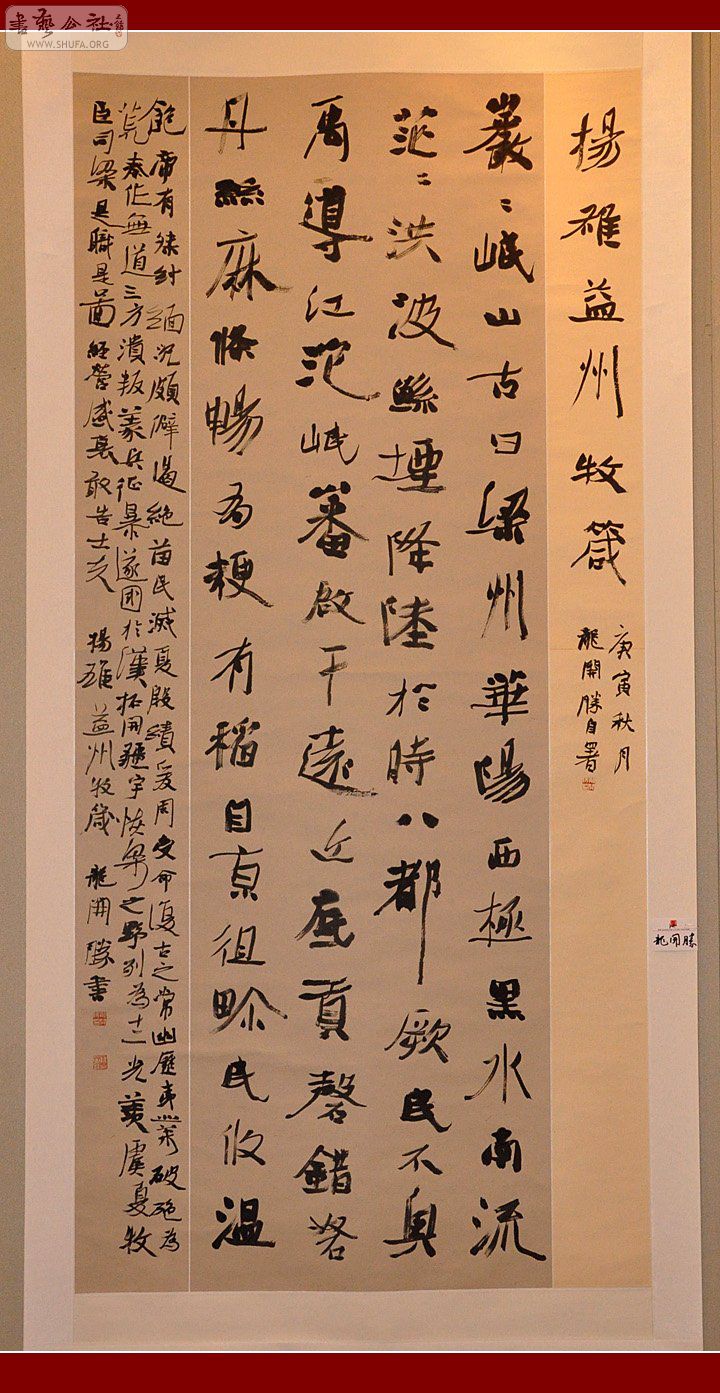 書藝公社
WWW.SHUFA.ORG
揚雄益州牧箴
庚寅秋月
龍開勝自署
巖〻岷山古曰梁州華陽西極黑水南流
茫〻洪波鯀堙降陸於時八都厥民不奧
禹導江沱岷嶓啟干遠近底貢磬錯砮
丹絲麻條暢粳有稻自京徂畛民攸溫
飽帝有桀紂湎沉頗僻遏絕苗民滅夏殷績爰周受命復古之常幽厲夷業破絕為
荒秦作無道三方潰叛義兵征暴遂國於漢拓開疆宇恢梁之野列為十二光羨虞夏牧
臣司梁是職是圖經營盛衰敢告士夫 揚雄益州牧箴 龍開勝書
龍開勝